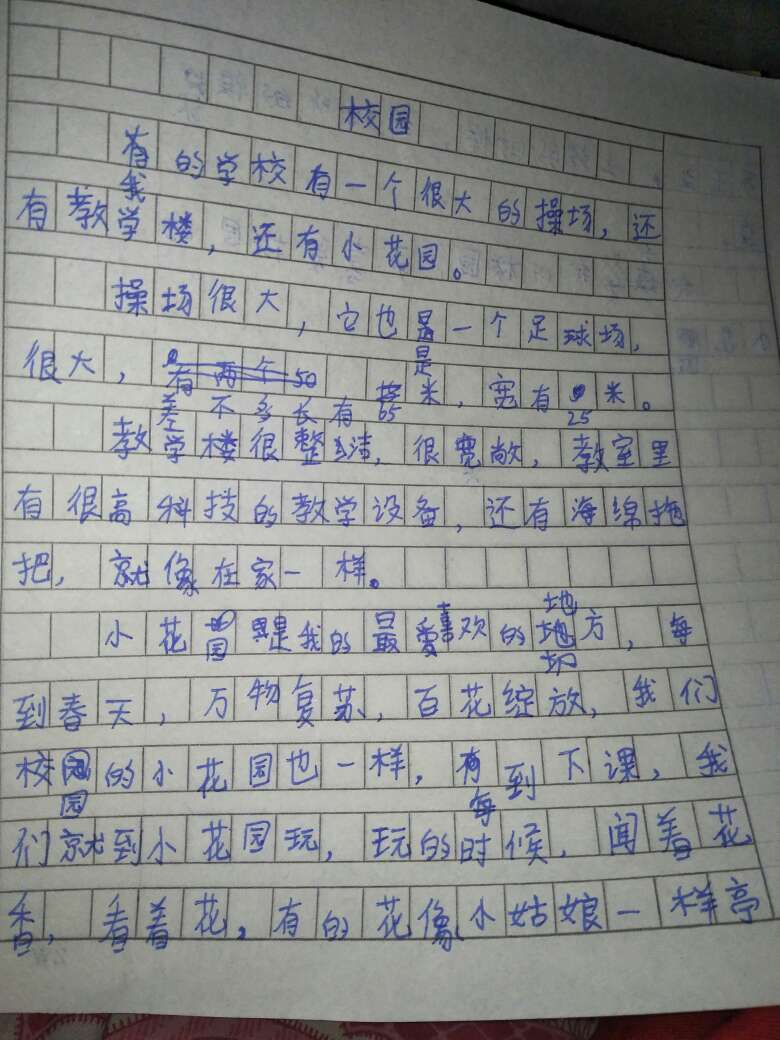 校园
我的学校有一个很大的操场，还
有教学楼，还有小花园。
操场很大，它也是一个足球场，
很大，差不多长有65米，宽有25米。
教学楼很整洁，很宽敞，教室里
有很高科技的教学设备，还有海绵拖
把，就像在家一样。
小花园是我的最喜欢的地方，每
到春天，万物复苏，百花绽放，我们
校园的小花园也一样，每到下课，我
们就到小花园玩，玩的时候，闻着花
香，看着花，有的花像小姑娘一样亭